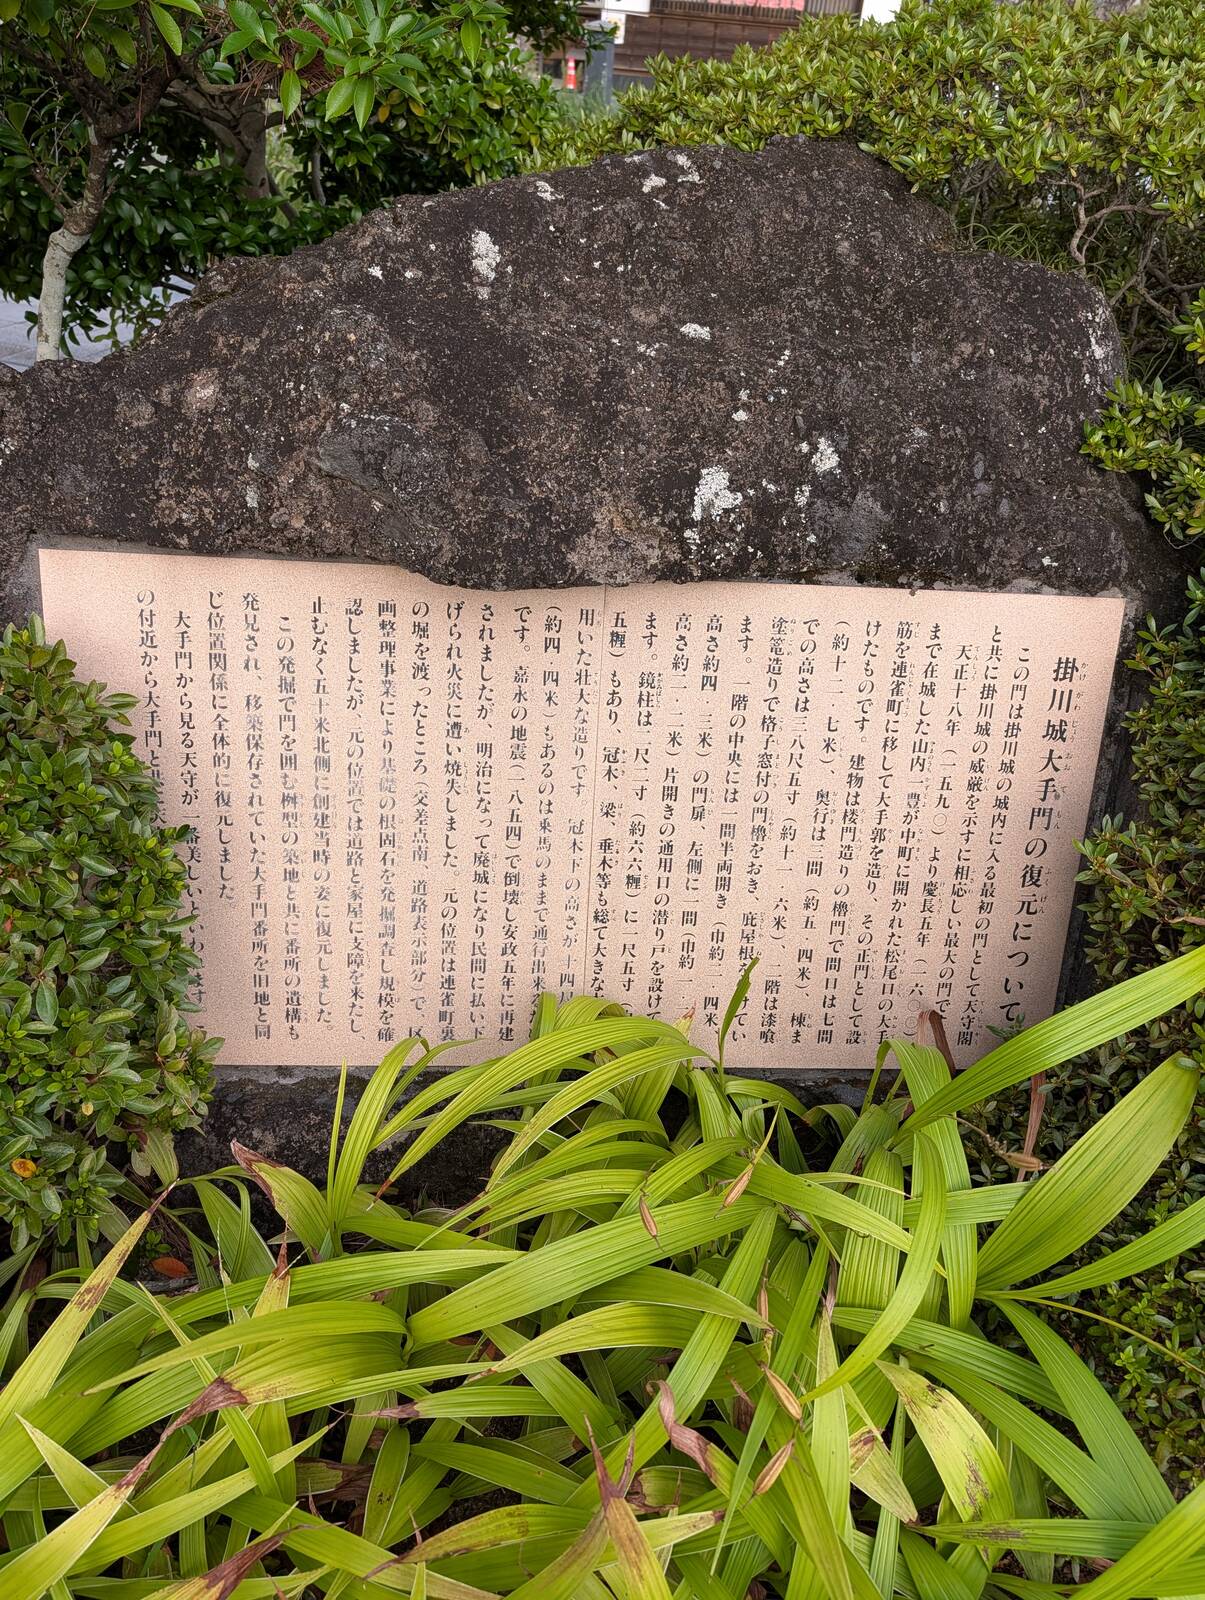 掛川城大手門の復元について
この門は掛川城の城内に入る最初の門として天守閣
と共に掛川城の威厳を示すに相応しい最大の門で
天正十八年(一五九〇)より慶長五年(一六〇〇)
まで在城した山内一豊が中町に開かれた松尾口の大手
筋を連雀町に移して大手郭を造り、その正門として設
けたものです。建物は楼門造りの櫓門で間口は七間
(約十二・七米)、奥行は三間(約五・四米)、棟ま
での高さは三八尺五寸(約十一・六米)、二階は漆喰
塗篭造りで格子窓付の門櫓をおき、庇屋根を けてい
ます。一階の中央には一間半両開き(巾約二・四米、
高さ約四・三米)の門扉、左側に一間(巾約一・
高さ約二・二米)片開きの通用口の潜り戸を設けて
ます。鏡柱は二尺二寸(約六六糎)に一尺五寸(
五糎)もあり、冠木、梁、垂木等も総て大きな
用いた壮大な造りです。冠木下の高さが十四尺
(約四・四米)もあるのは乗馬のままで通行出来る
です。嘉永の地震(一八五四)で倒壊し安政五年に再建
されましたが、明治になって廃城になり民間に払い下
げられ火災に遭い焼失しました。元の位置は連雀町裏
の堀を渡ったところ(交差点南、道路表示部分)で、区
画整理事業により基礎の根固石を発掘調査し規模を確
認しましたが、元の位置では道路と家屋に支障を来たし、
止むなく五十米北側に創建当時の姿に復元しました。
この発掘で門を囲む桝型の築地と共に番所の遺構も
発見され、移築保存されていた大手門番所を旧地と同
じ位置関係に全体的に復元しました。
大手門から見る天守が一番美しいといわ ます
の付近から大手門と